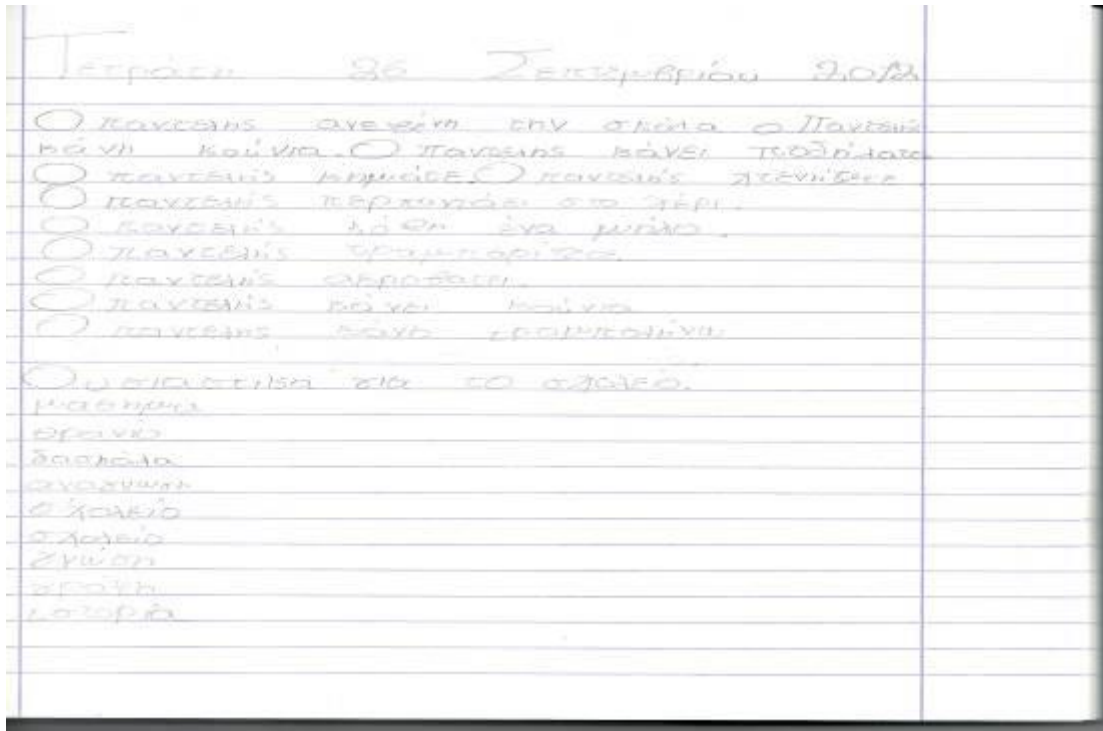 Τετράτη 26 Σεπτεμβρίου 2012
Ο παντελης ανεβένη την σκάλα ο Παντελής
κάνη κούνια. Ο παντελης κάνει ποδήλατο
Ο παντελής κημάτε. Ο παντελής χτενήζετε
Ο παντελής περπατάει στο χέρι.
Ο παντελής κόθη ένα μήλο.
Ο παντελής τραμπαρίζα.
Ο παντελής ακροβατη.
Ο παντελής κάνει κούνια
Ο παντελης κάνη τραμπολίνο
Ουσιαστηκά για το σχολείο.
μαθημα
θρανίο
δασκάλα
αναγνωση
σχολείο
σχολείο
γνώση
γραφη
ιστορία